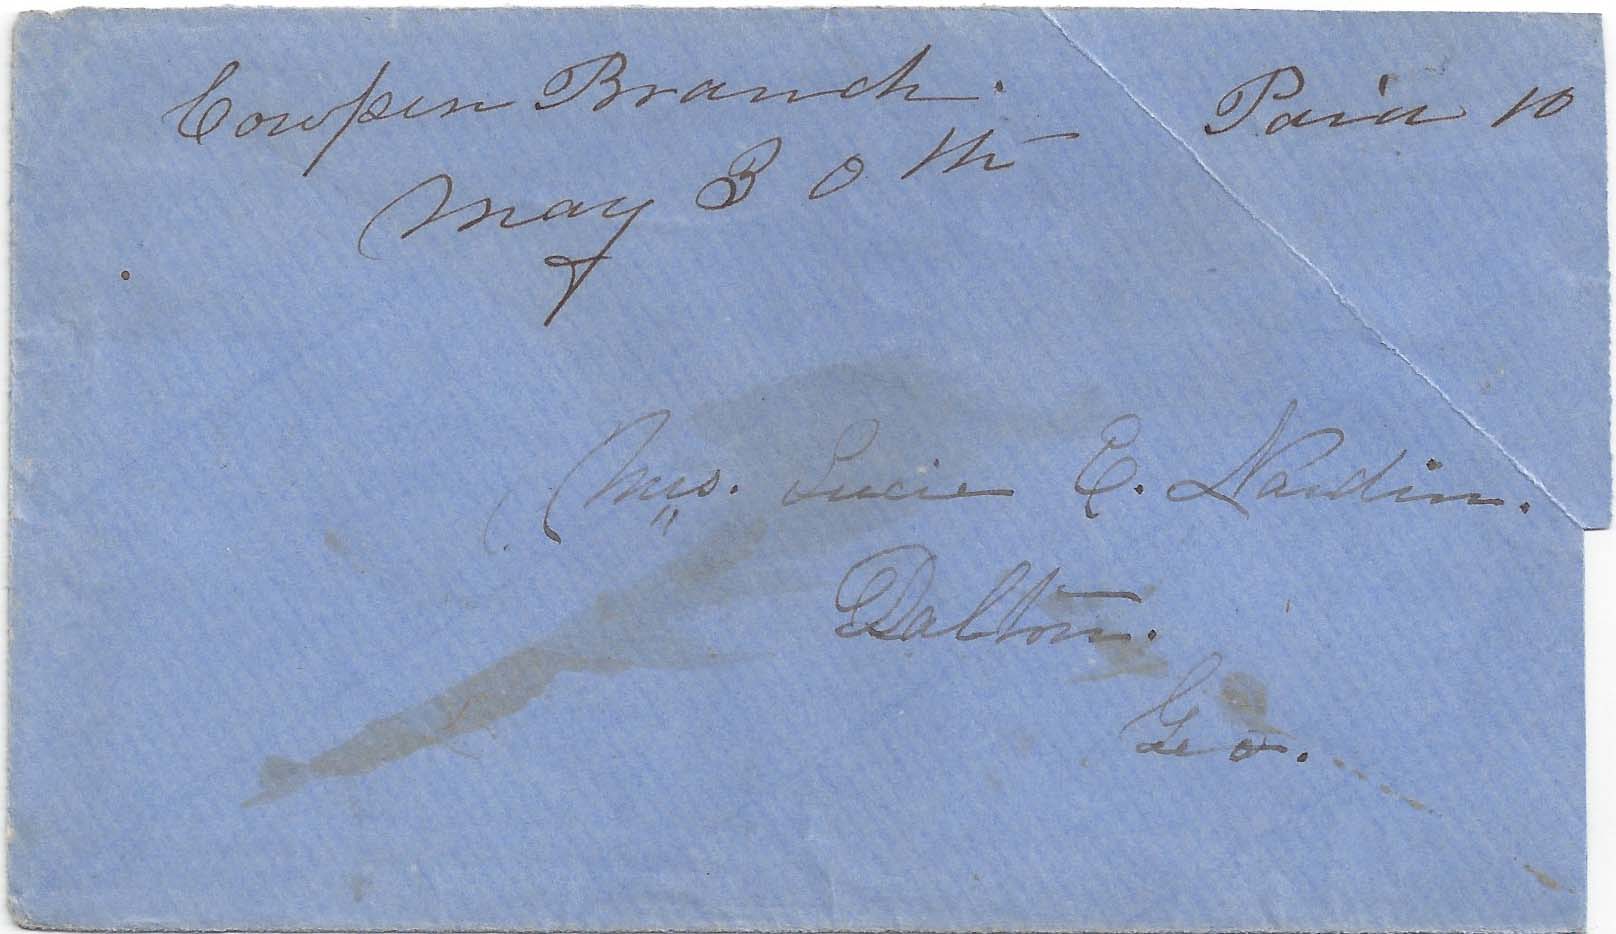 Cowpen Branch. Paid 10
May 30th
Mrs. Lucie E. Nardin.
Dalton.
Geo.